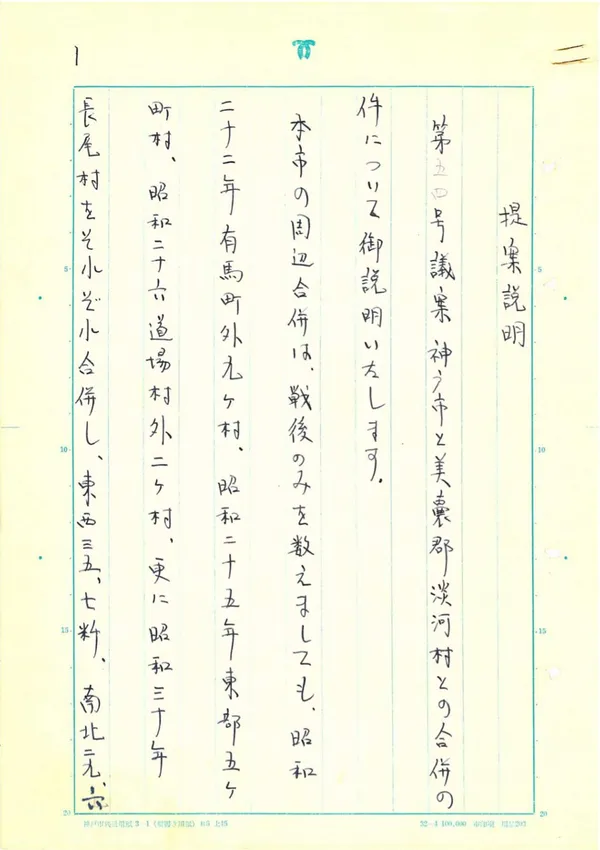 1
二
提案説明
第五四号議案 神戸市と美嚢郡淡河村との合併の
件について御説明いたします。
本市の周辺合併は、戦後のみを数えましても、昭和
二十二年有馬町外九ヶ村、昭和二十五年東部五ヶ
町村、昭和二十六道場村外二ヶ村、更に昭和三十年
長尾村をそれぞれ合併し、東西三五、七粁、南北二九、六
5
10
15
20
5
10
15
20